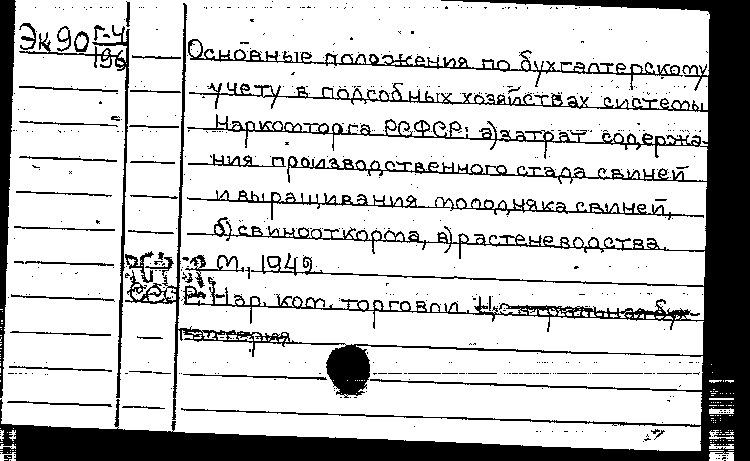 Эк90 Г-4/196
Основные положения по бухгалтерскому
учету в подсобных хозяйствах системы
Наркомторга РСФСР: а) затрат содержа-
ния производственного стада свиней
и выращивания молодняка свиней,
б) свинооткорма, в) растеневодства.
М., 1942.
Нар. ком. торговли. Центральная бух-
галтерия.